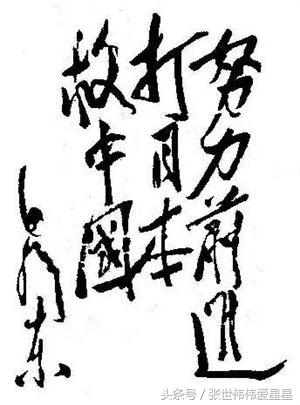 努力前進
打日本
救中國
毛澤东
头条号 / 张世伟伟爱星星